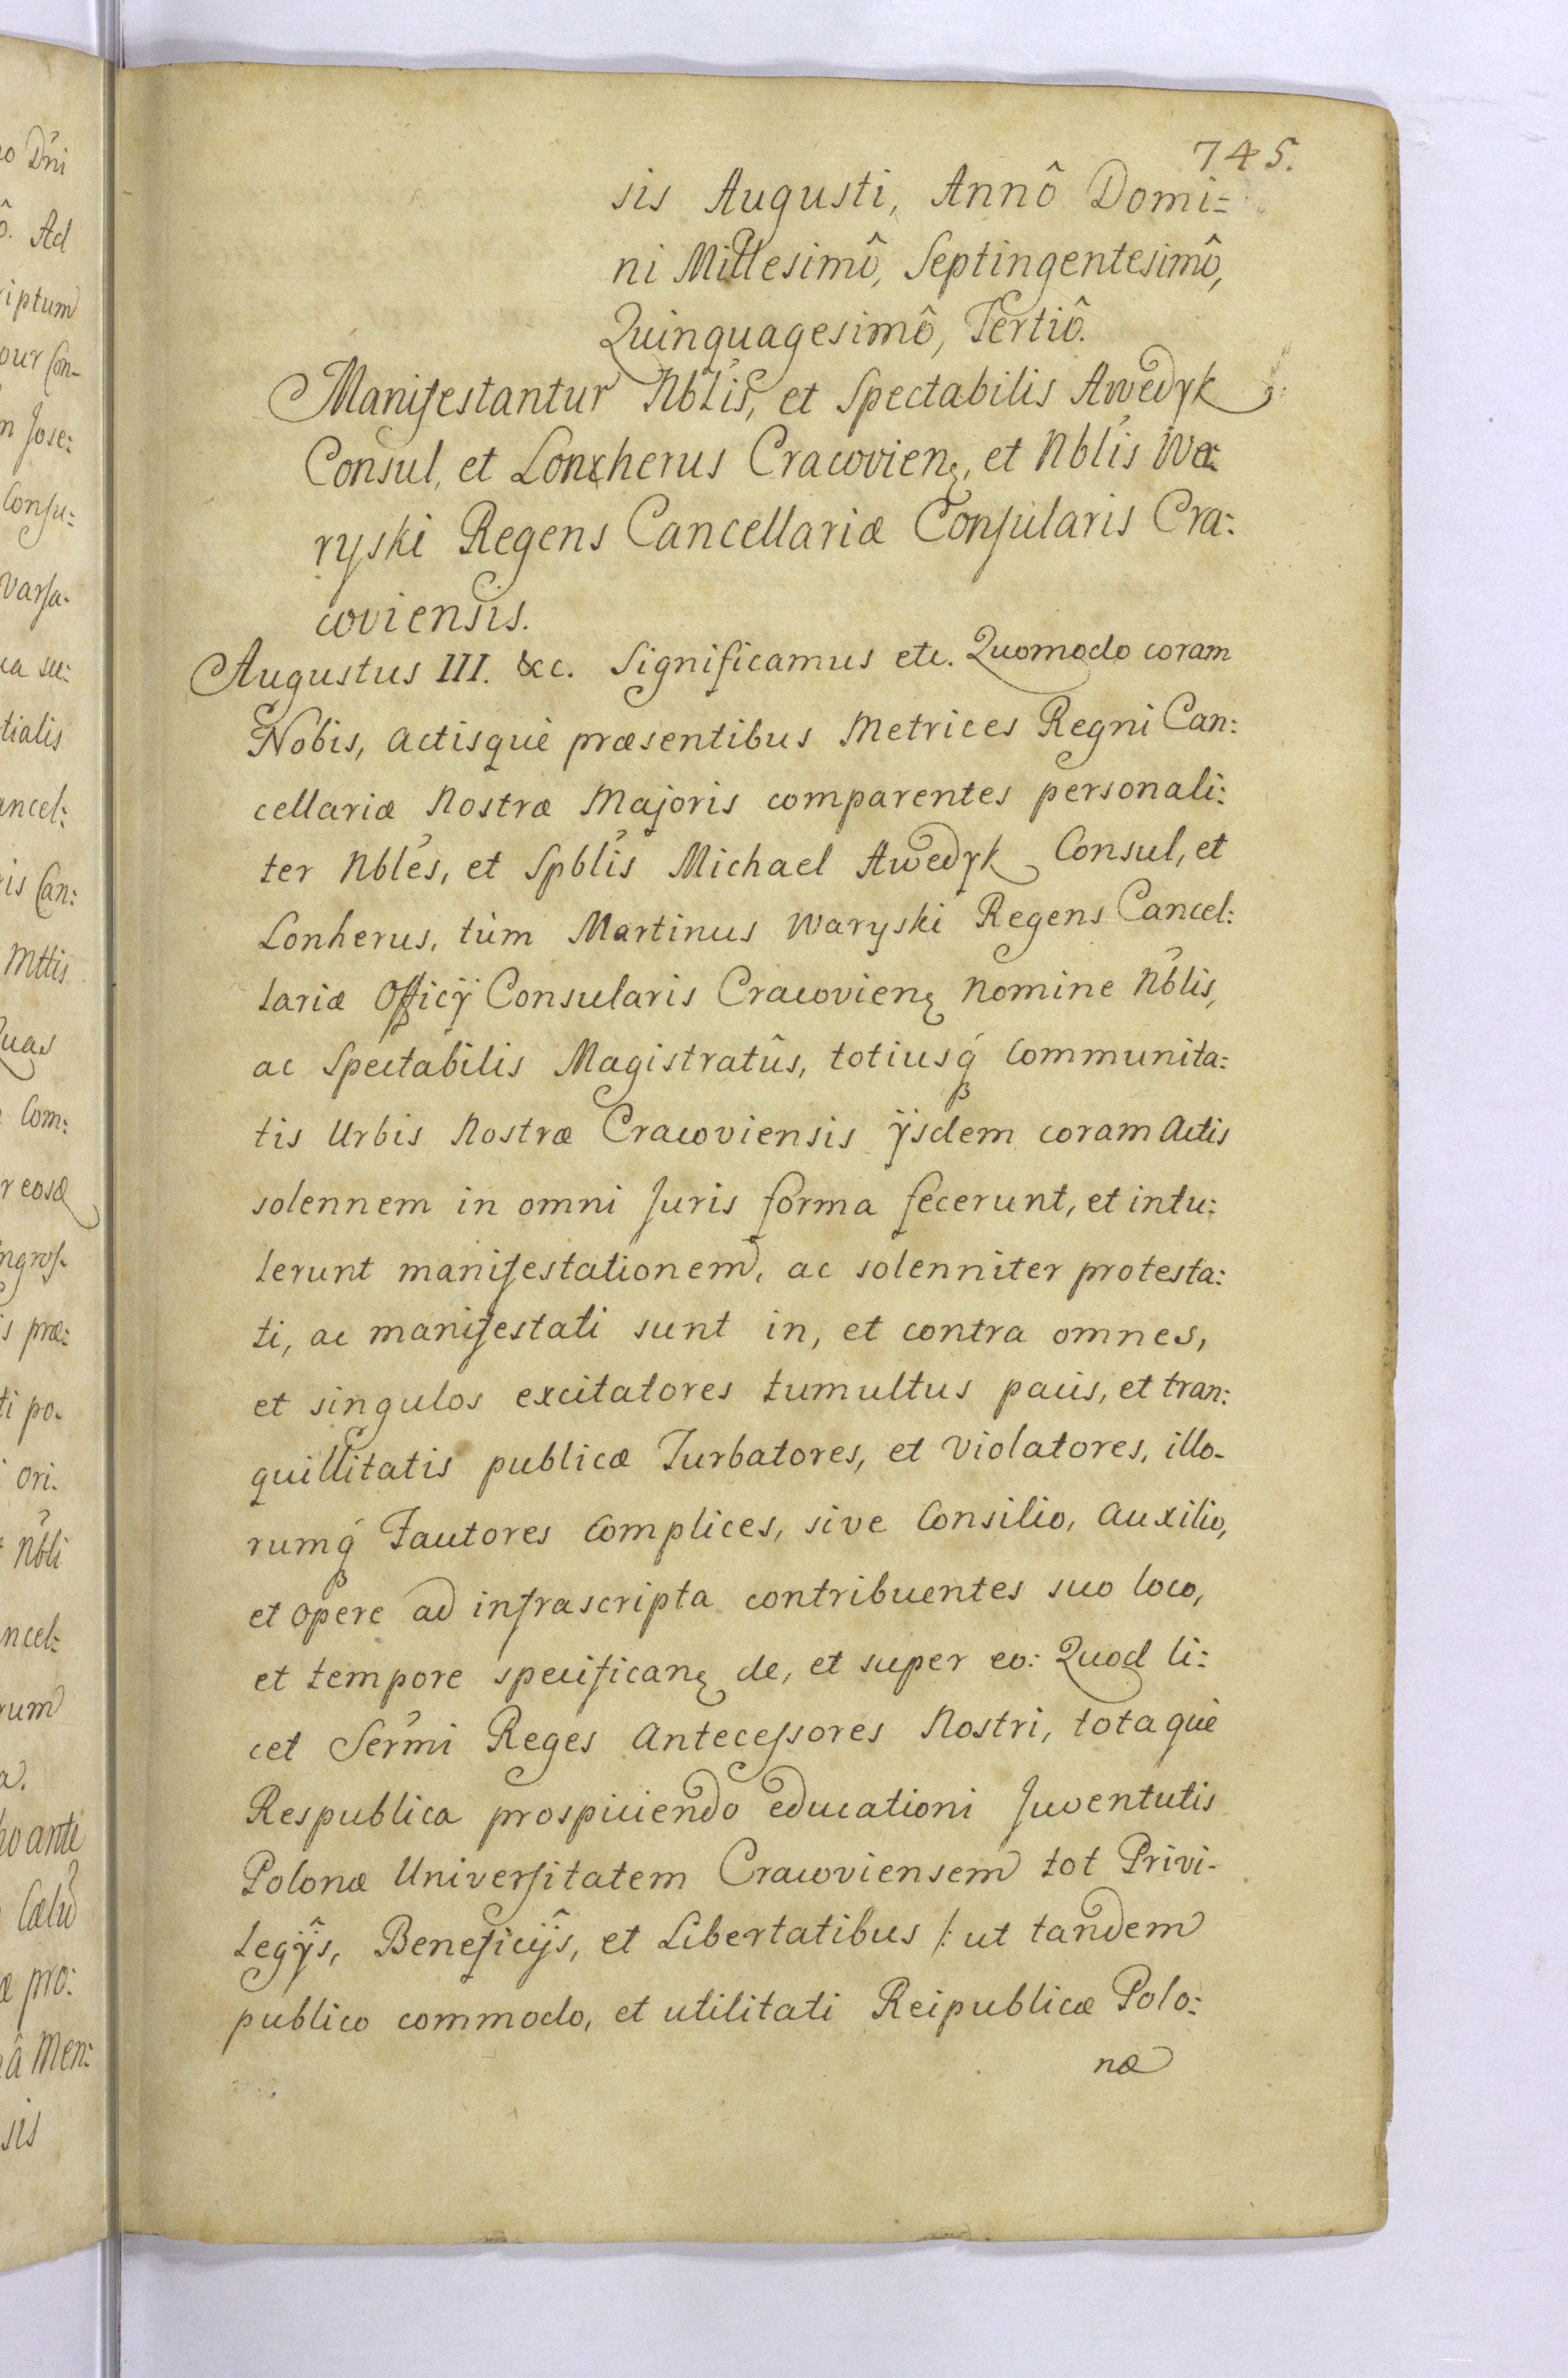 745.
sis Augusti, Annô Domi=
ni Millesimô, Septingentesimô,
Quinquagesimô, Tertiô.
Manifestantur Nblis, et Spectabilis Awedyk
Consul, et Lonxherus Cracovien̨, et Nblis Wa:
ryski Regens Cancellariæ Consularis Cra:
coviensis.
Augustus III. &c. Significamus etc. Quomodo coram
Nobis, Actisquè præsentibus Metrices Regni Can:
cellariæ Nostræ Majoris comparentes personali:
ter Nbles, et Spblis Michael Awedyk Consul, et
Lonherus, tùm Martinus Waryski Regens Cancel:
lariæ Officÿ Consularis Cracovien̨ Nomine Nblis,
ac Spectabilis Magistratûs, totiusq́ Communita:
tis Urbis Nostræ Cracoviensis ÿsdem coram Actis
solennem in omni Juris forma fecerunt, et intu:
lerunt manifestationem, ac solenniter protesta:
ti, ac manifestati sunt in, et contra omnes,
et singulos excitatores tumultus pacis, et tran:
quillitatis publicæ Turbatores, et Violatores, illo-
rumq́ Fautores Complices, sive Consilio, Auxilio,
et Opere ad infrascripta contribuentes suo loco,
et tempore specifican̨ de, et super eo: Quod li:
cet Sermi Reges Antecessores Nostri, totaquè
Respublica prospiciendo educationi Juventutis
Polonæ Universitatem Cracoviensem tot Privi-
legÿs, Beneficÿs, et Libertatibus /: ut tandem
publico commodo, et utilitati Reipublicæ Polo:
næ